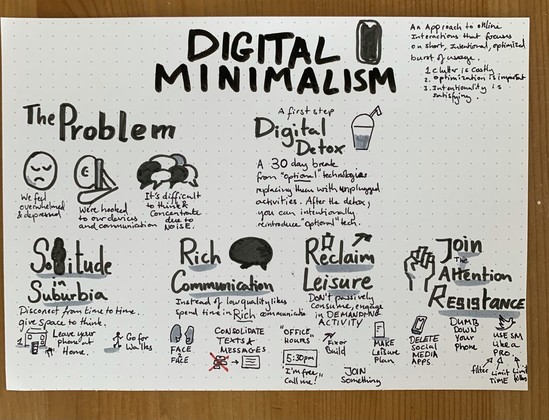 DIGITAL
MINIMALISM
An Approach to online
Interactions that focuses
on short, Intentional, optimized
burst of usage.
1. Clutter is Costly
2. Optimization is important
3. Intentionality is
satisfying.
The Problem
We feel
overwhelmed
& depressed
We're hooked
to our devices
and communication
It's difficult
to think &
Concentrate
due to
NOISE.
A first step
Digital
Detox
A 30 day break
from "optional" technologies
replacing them with unplugged
activities. After the detox,
you can intentionally
reintroduce "optional" tech.
Solitude
in
Suburbia
Disconnect from time to time.
give space to think.
1
Leave your
phone at
Home.
Go for
Walks
Rich
Communication
Instead of low quality likes
spend time in Rich communication
FACE
to
FACE
CONSOLIDATE
TEXTS &
MESSAGES
"OFFICE
HOURS"
5:30pm
"I'm free,
Call me!"
Reclaim
Leisure
Don't passively
consume, engage
in DEMANDING
ACTIVITY
Fix or
Build
MAKE
Leisure
Plan
JOIN
Something
Join
The
Attention
RESISTANCE
DELETE
Social
MEDIA
APPS.
DUMB
DOWN
Your
Phone
USE SM
Like a
PRO.
filter
Limit
TIME
Limit